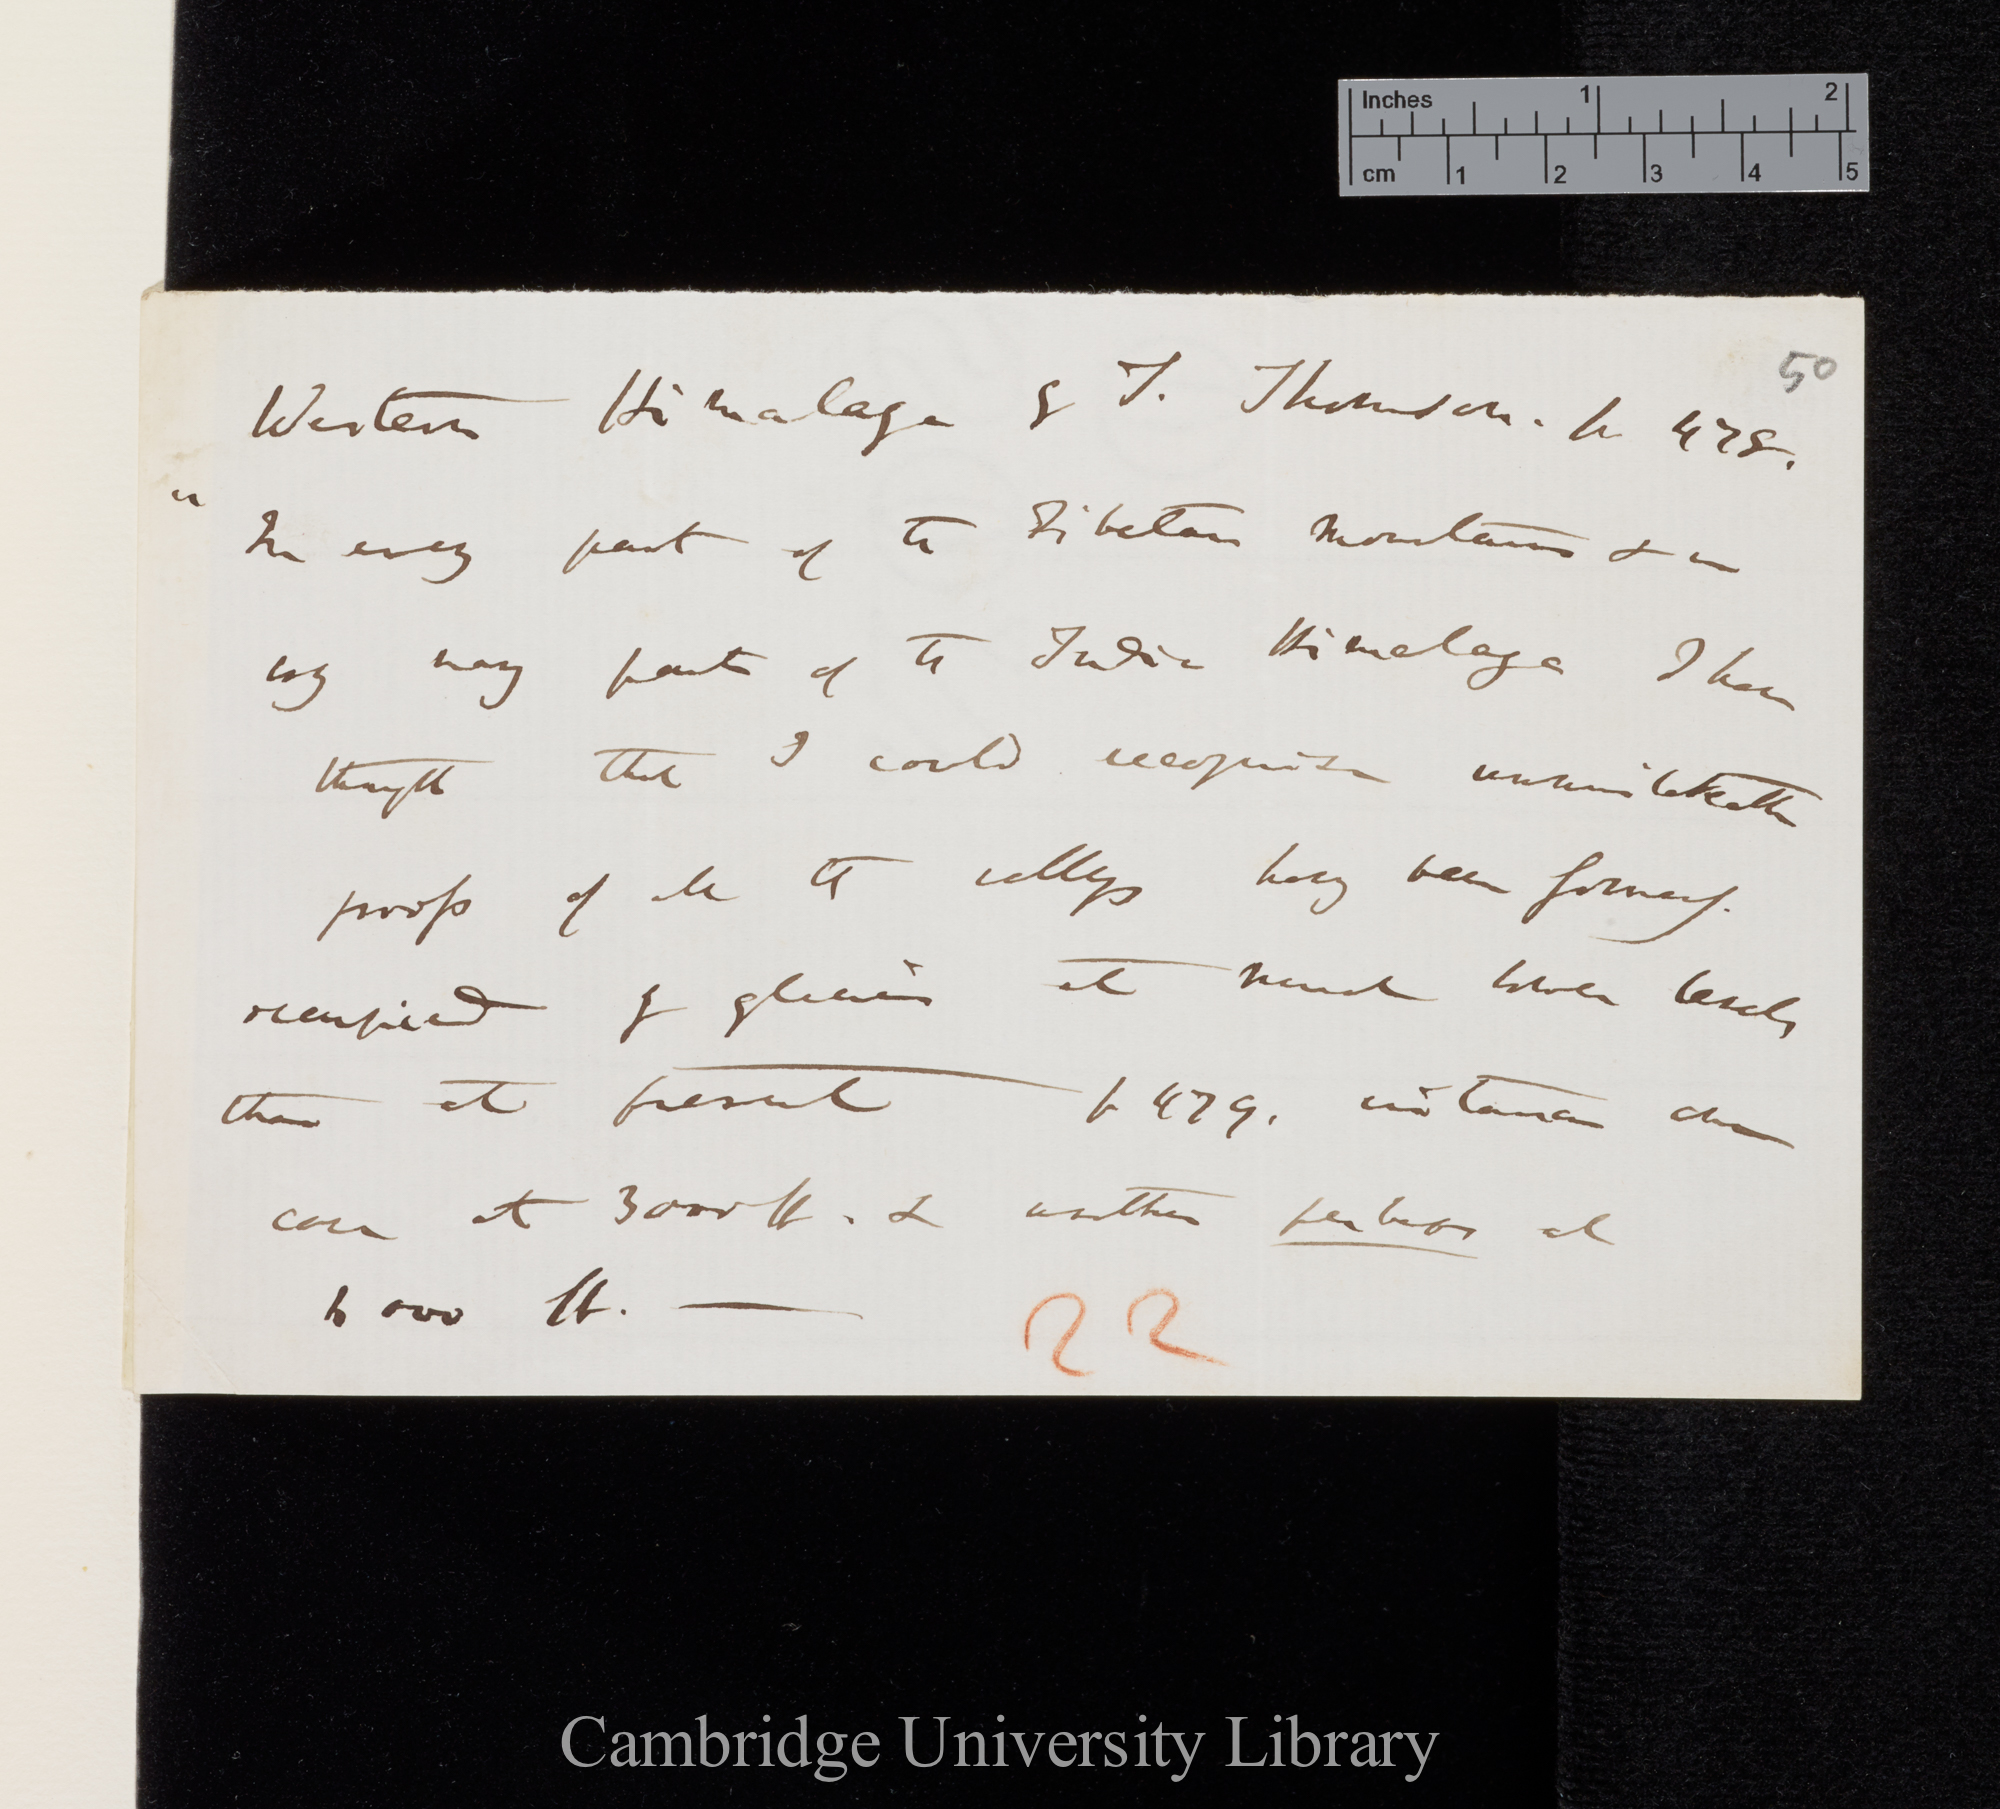 Inches 1 2
cm 1 2 3 4 5
50
Western Himalaya by T. Thomson. p 478.
" In every part of the Tibetan Mountains & in
very many parts of the Indian Himalaya I have
thought that I could recognise unmistakeable
proofs of all the valleys having been formerly
occupied by glaciers at much lower levels
than at present — p 479. instances one
case at 3000 ft. & another perhaps at
000 ft. —
22
Cambridge University Library